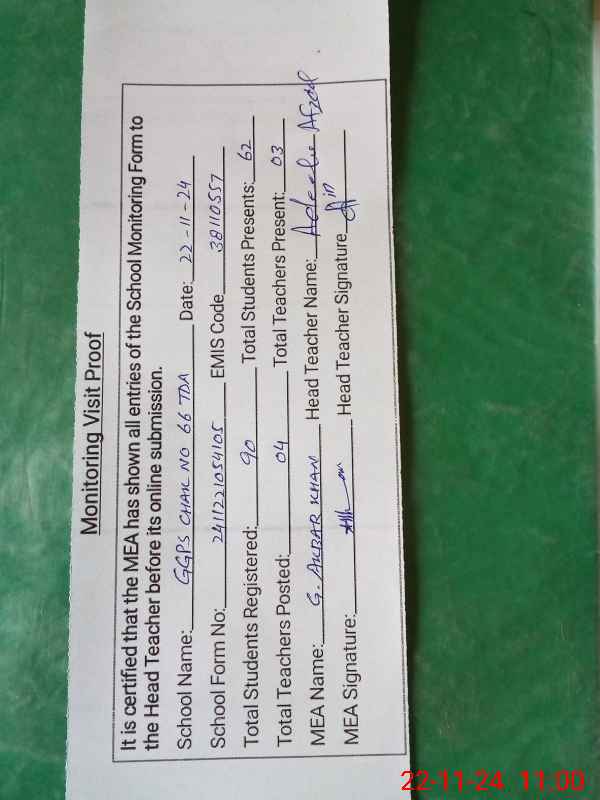 Monitoring Visit Proof
It is certified that the MEA has shown all entries of the School Monitoring Form to
the Head Teacher before its online submission.
School Name: GGPS CHAK NO 66 TDA Date: 22-11-24
School Form No: 2411221054105 EMIS Code 38110557
Total Students Registered: 90 Total Students Presents: 62
Total Teachers Posted: 04 Total Teachers Present: 03
MEA Name: G. AKBAR KHAN Head Teacher Name: Adeeba Afzal
MEA Signature: Head Teacher Signature
22-11-24 11:00